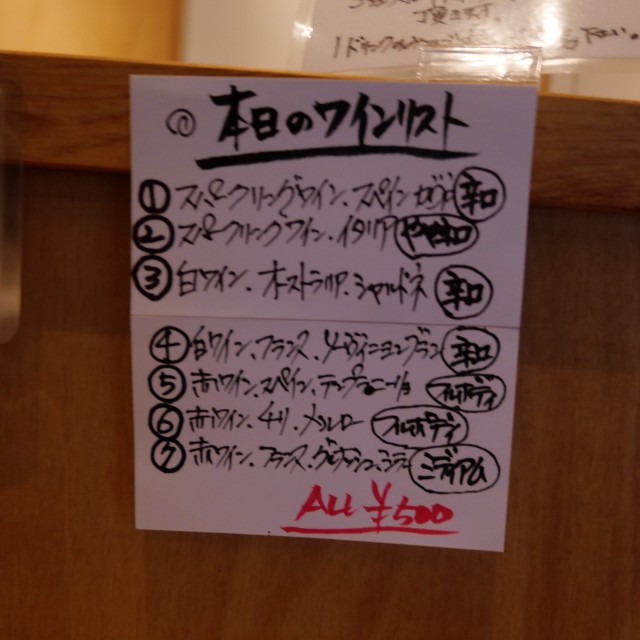 ご覧ます。
1ドリンク
下さい。
本日のワインリスト
① スパークリングワイン、スペイン カヴァ 辛口
② スパークリングワイン、イタリア やや辛口
③ 白ワイン、オーストラリア、シャルドネ 辛口
④ 白ワイン、フランス、ソーヴィニヨンブラン 辛口
⑤ 赤ワイン、スペイン、テンプラニーリョ フルボディ
⑥ 赤ワイン、チリ、メルロー フルボディ
⑦ 赤ワイン、フランス、グルナッシュ、シラー ミディアム
ALL ¥500